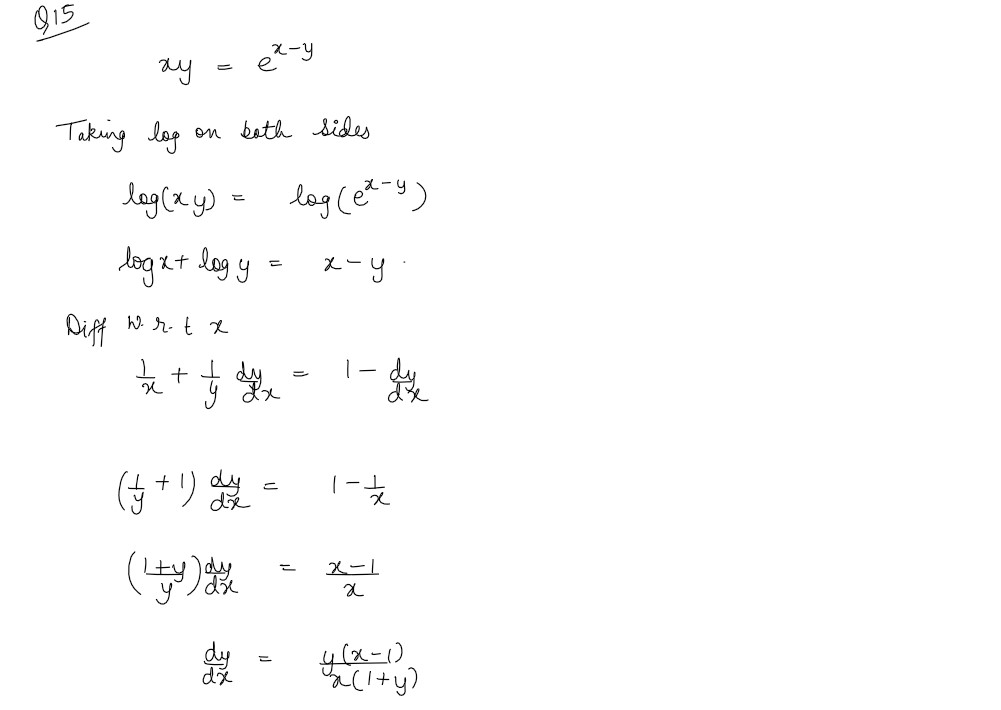 Q15
xy = e^(x-y)
Taking log on both sides
log(xy) = log(e^(x-y))
log x + log y = x - y .
Diff w.r.t x
1/x + 1/y dy/dx = 1 - dy/dx
(1/y + 1) dy/dx = 1 - 1/x
((1+y)/y) dy/dx = (x-1)/x
dy/dx = y(x-1)/x(1+y)